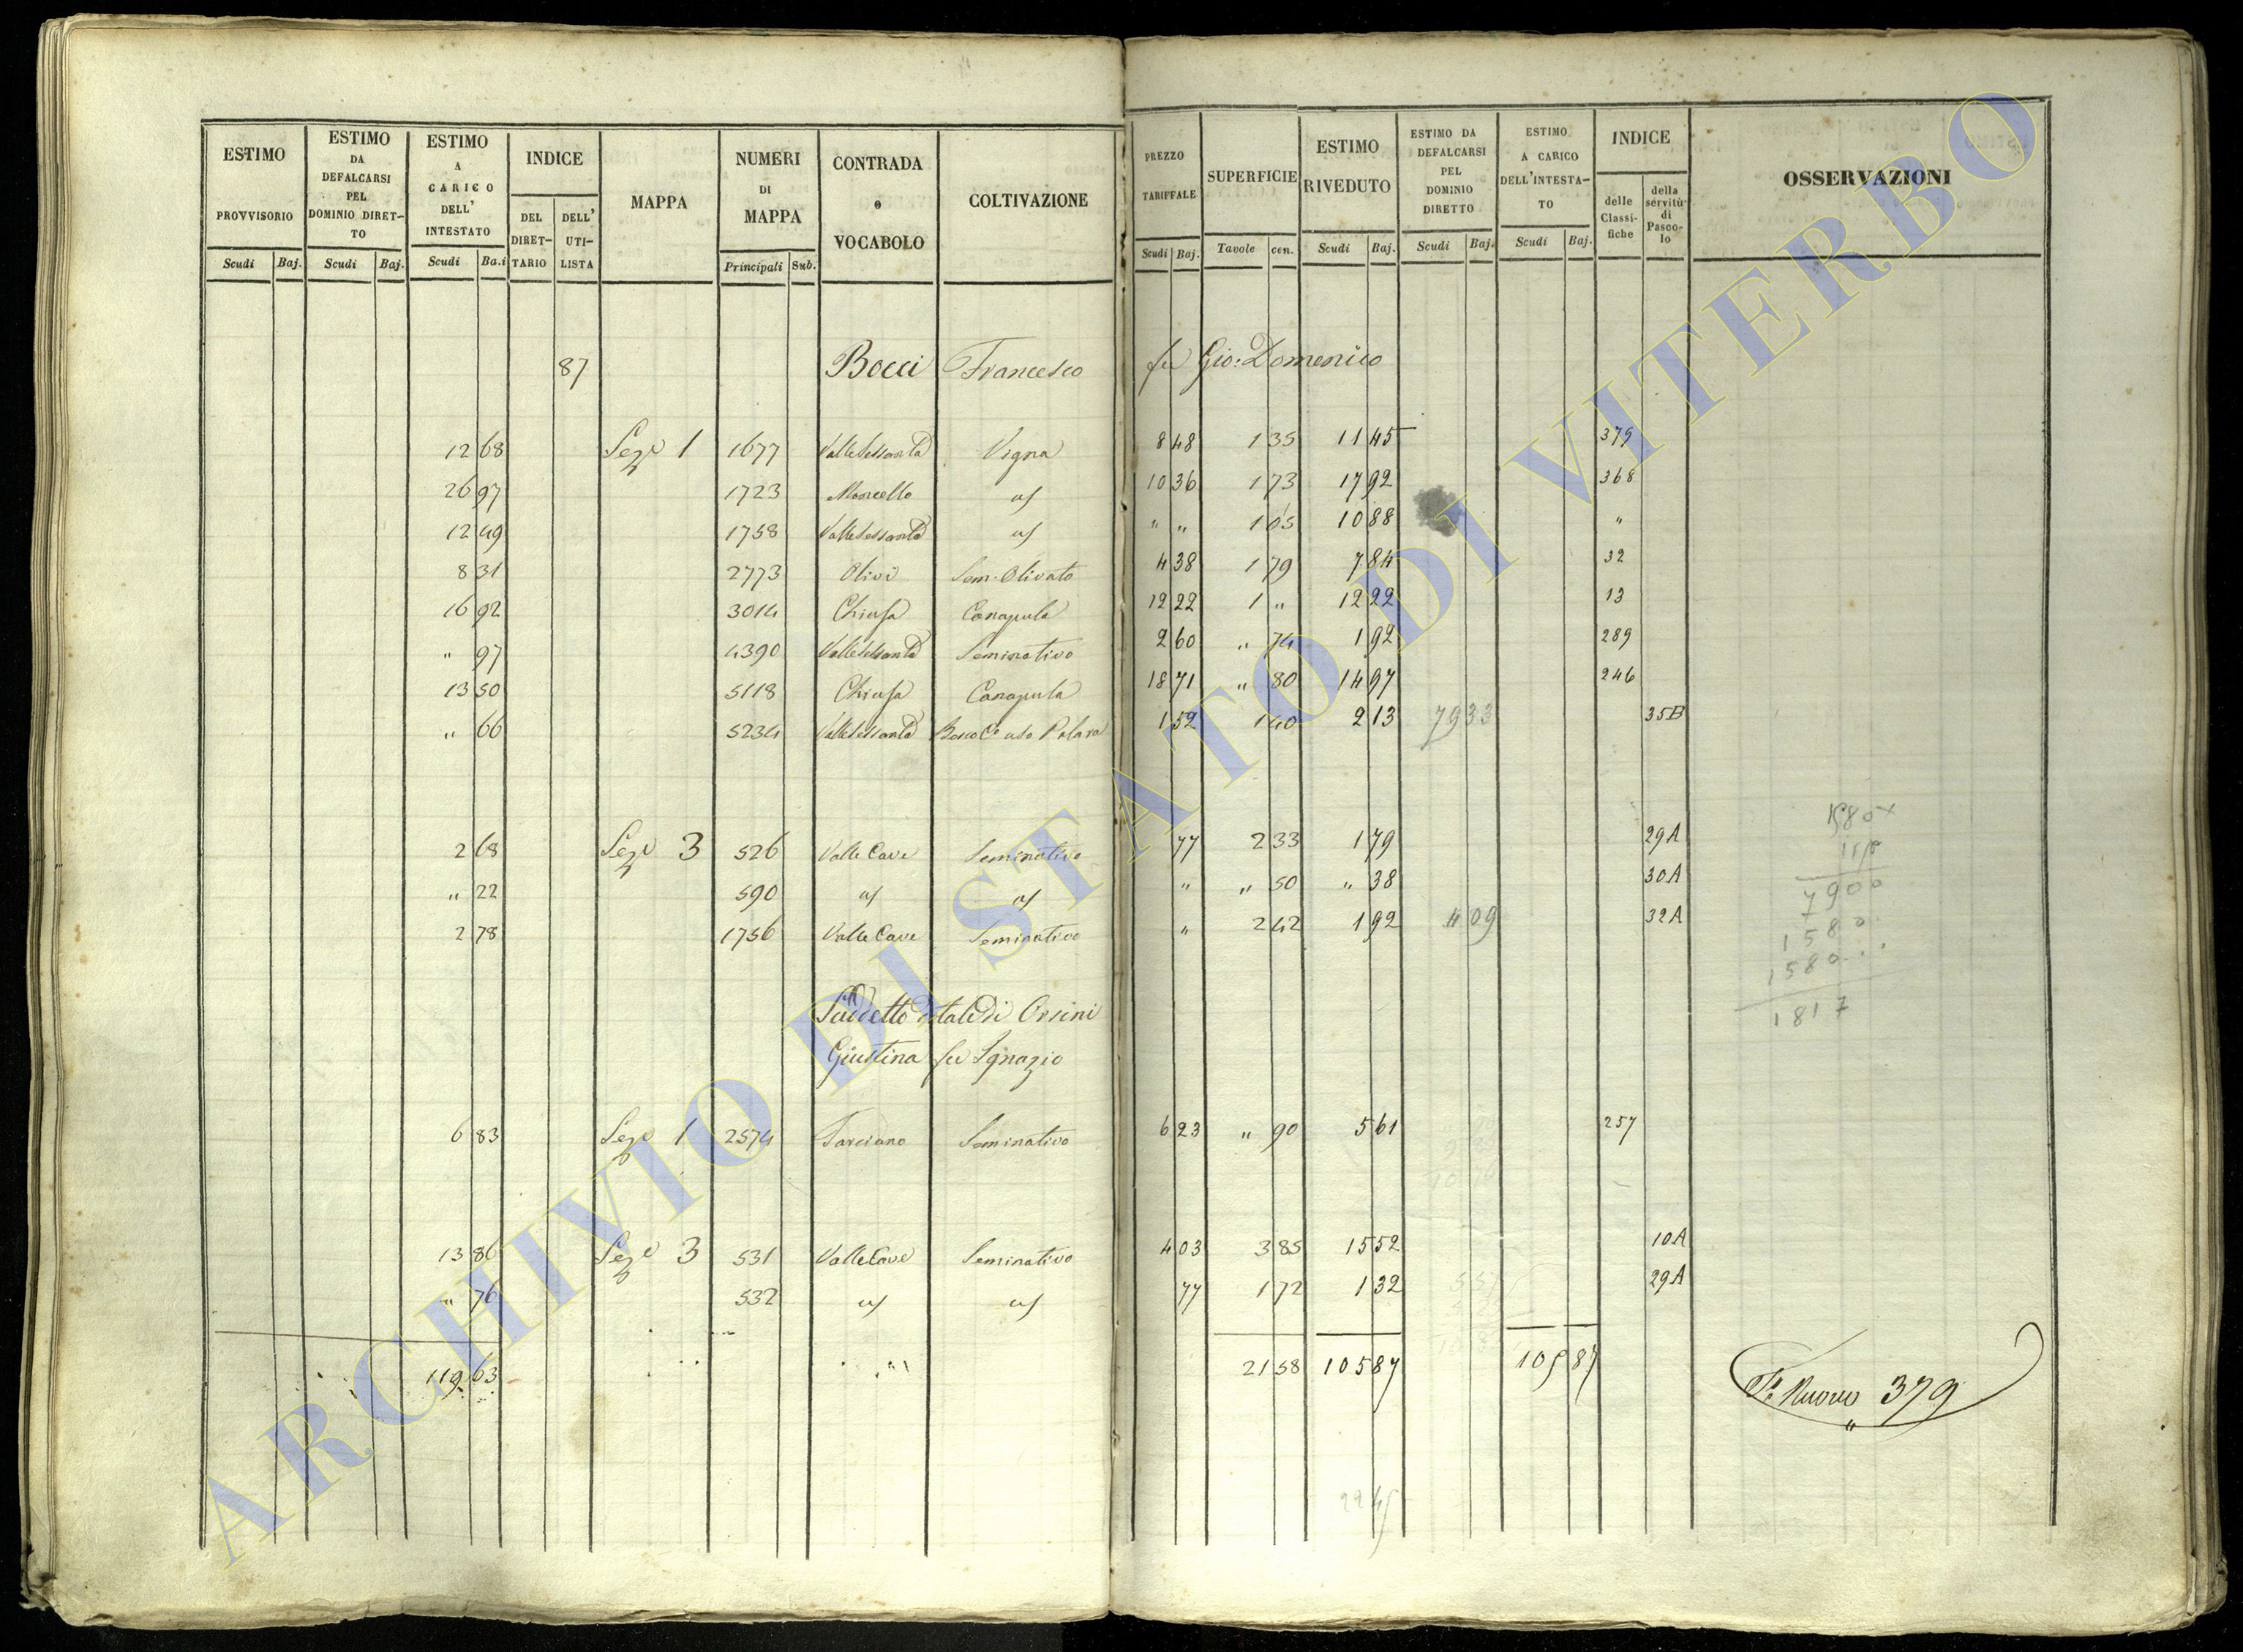 ESTIMO PROVVISORIO Scudi Baj. | ESTIMO DA DEFALCARSI PEL DOMINIO DIRET-TO Scudi Baj. | ESTIMO A CARICO DELL' INTESTATO Scudi Ba.i | INDICE DEL DIRET-TARIO DELL' UTI-LISTA | MAPPA | NUMERI DI MAPPA Principali Sub. | CONTRADA o VOCABOLO | COLTIVAZIONE | PREZZO TARIFFALE Scudi Baj. | SUPERFICIE Tavole cen. | ESTIMO RIVEDUTO Scudi Baj. | ESTIMO DA DEFALCARSI PEL DOMINIO DIRETTO Scudi Baj. | ESTIMO A CARICO DELL'INTESTA-TO Scudi Baj. | INDICE delle Classi-fiche della servitù di Pasco-lo | OSSERVAZIONI
87 Bocci Francesco fu Gio: Domenico
12 68 Sez.e 1 1677 Vigna 8 48 1 35 11 45 375
26 97 1723 Moncello us 10 36 1 73 17 92 368
12 49 1758 us " " 1 05 10 88 "
8 31 2773 Olivi Sem. Olivato 4 38 1 79 7 84 32
16 92 3014 Chiusa Canapula 12 22 1 " 12 22 13
" 97 4390 Seminativo 2 60 " 74 1 92 289
13 50 5118 Chiusa Canapula 18 71 " 80 14 97 246
" 66 5234 1 52 1 40 2 13 79 33 35B
1580
2 68 Sez.e 3 526 Valle Cave Seminativo 77 2 33 1 79 29A
" 22 590 us us " " 50 " 38 30A
7900
2 78 1756 Valle Cave Seminativo " 2 42 1 92 4 09 32A
1580
1580
1817
Suddetto dotale di Orsini
Giustina fu Ignazio
6 83 Sez.e 1 2574 Tarciano Seminativo 6 23 " 90 5 61 257
13 86 Sez.e 3 531 Valle Cave Seminativo 4 03 3 85 15 52 10A
" 76 532 us us 77 1 72 1 32 29A
119 63 21 58 105 87 105 87
Fo. Nuovo 379
ARCHIVIO DI STATO DI VITERBO